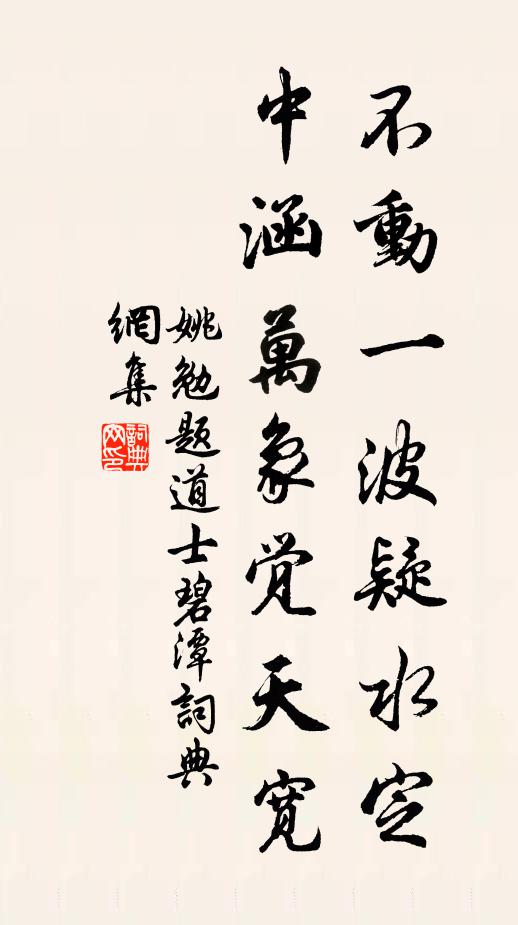 不動一波疑水定
中涵萬象覺天寬
姚勉題道士碧潭詞典
網集
詞典網印